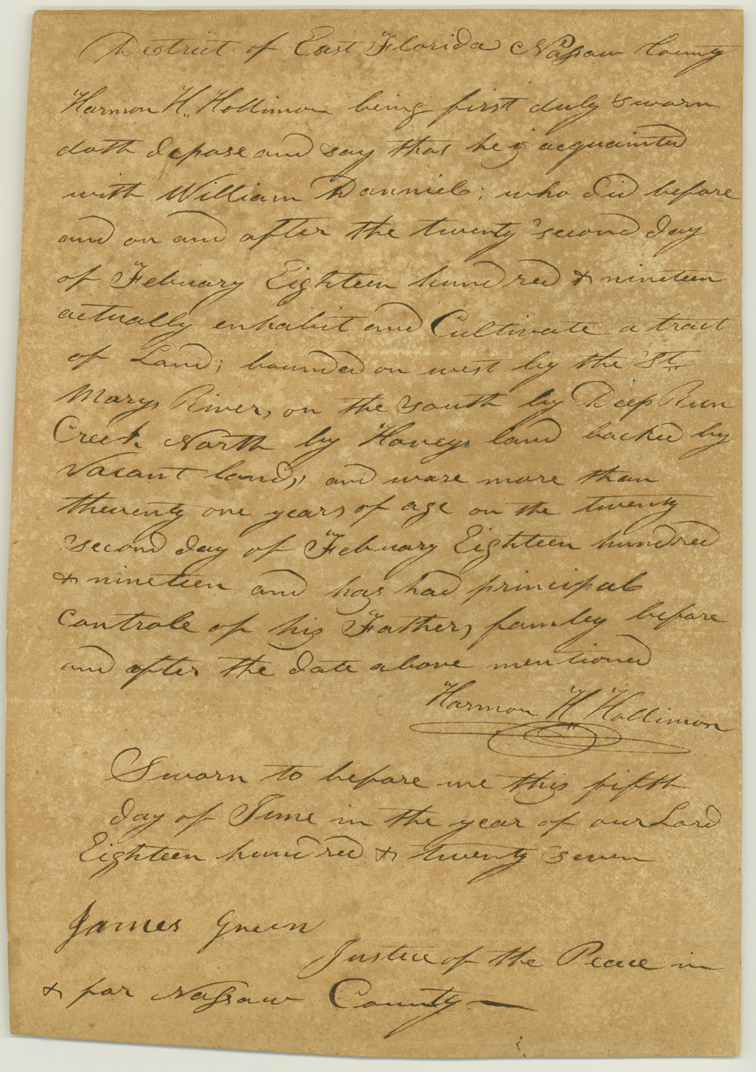 District of East Florida Nassaw County
Harmon H. Hollimon being first duly sworn
doth depose and say that he is acquainted
with William Danniels; who did before
and on and after the twenty second day
of Febuary Eighteen hundred & nineteen
actually enhabit and Cultivate a tract
of Land; bounded on west by the St
Marys River, on the south by Deep Run
Creek North by Hoveys land backed by
Vacant land; and ware more than
thewenty one years of age on the twenty
second day of Febuary Eighteen hundred
& nineteen and has had principal
controle of his Fathers famley before
and after the date above mentioned
Harmon H Hollimon
Sworn to before me this fifth
day of June in the year of our Lord
Eighteen hundred & twenty seven
James Green
Justice of the Peace in
& for Nassaw County